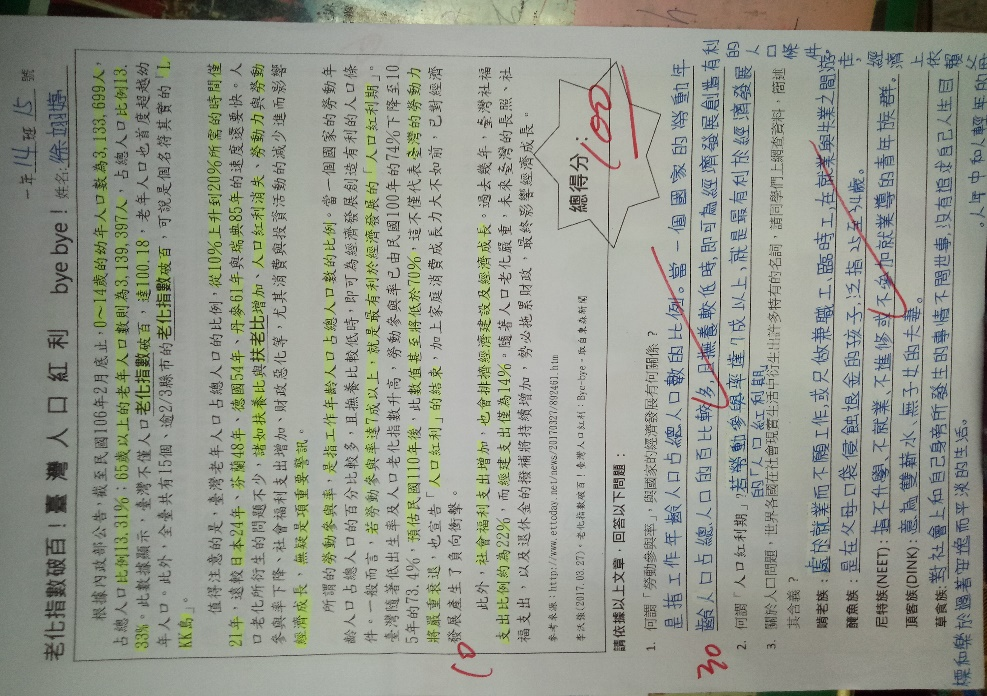 一年 14 班 15 號
老化指數破百！臺灣人口紅利 bye bye！ 姓名:徐翊婷
根據內政部公告，截至民國106年2月底止，0～14歲的幼年人口數為3,133,699人，
占總人口比例13.31%；65歲以上的老年人口數則為3,139,397人，占總人口比例13.
33%。此數據顯示，臺灣不僅人口老化指數破百，達100.18，老年人口也首度超越幼
年人口。此外，全臺共有15個、逾2/3縣市的老化指數破百，可說是個名符其實的「L
KK島」。
值得注意的是，臺灣老年人口占總人口的比例，從10%上升到20%所需的時間僅
21年，遠較日本24年、芬蘭48年、德國54年、丹麥61年與瑞典85年的速度還要快。人
口老化所衍生的問題不少，諸如扶養比與扶老比增加、人口紅利消失、勞動力與勞動
參與率下降、社會福利支出增加、財政惡化等，尤其消費與投資活動的減少進而影響
經濟成長，無疑是項重要警訊。
所謂的勞動參與率，是指工作年齡人口占總人口數的比例。當一個國家的勞動年
齡人口占總人口的百分比較多，且撫養比較低時，即可為經濟發展創造有利的人口條
件。一般而言，若勞動參與率達7成以上，就是最有利於經濟發展的「人口紅利期」。
臺灣隨著低出生率及人口老化指數升高，勞動參與率已由民國100年的74%下降至10
5年的73.4%，預估民國110年後，此數值甚至將低於70%，這不僅代表臺灣的勞動力
將嚴重衰退，也宣告「人口紅利」的結束，加上家庭消費成長力大不如前，已對經濟
發展產生了負向衝擊。
此外，社會福利支出增加，也會排擠經濟建設及經濟成長。過去幾年，臺灣社社福
支出比例約為22%，而經建支出僅為14%。隨著人口老化嚴重，未來臺灣的長照、社
福支出，以及退休金的撥補將持續增加，勢必拖累財政，最終影響經濟成長。
參考來源：http://www.ettoday.net/news/20170327/892461.htm
李汎張(2017.03.27)。老化指數破百！臺灣人口紅利：Bye-bye。取自東森新聞
10
總得分：
100
請依據以上文章，回答以下問題：
1. 何謂「勞動參與率」，與國家的經濟發展有何關係？
是指工作年齡人口占總人口數的比例。當一個國家的勞動年
齡人口占總人口的百比較多，且撫養較低時，即可為經濟發展創造有利的人口條件。
30
2. 何謂「人口紅利期」？若勞動參與率達7成以上，就是最有利於經濟發展
的「人口紅利期」
3. 關於人口問題，世界各國在社會現實生活中衍生出許多特有的名詞，請同學們上網查資料，簡述
其含義？
啃老族：處於就業而不願工作或只做兼職工、臨時工在就業與失業之間游走，經濟上依賴父母
醜魚族：是在父母口袋侵蝕銀金的孩子，泛指 34歲。
尼特族(NEET)：指不升學、不就業、不進修或不參加就業輔導的青年族群。
頂客族(DINK)：意為雙薪水、無子女的夫妻。
草食族：對社會上和自己身旁所發生的事情不聞世事，沒有追求自己人生目
標和樂於隨著平穩而平淡的生活。